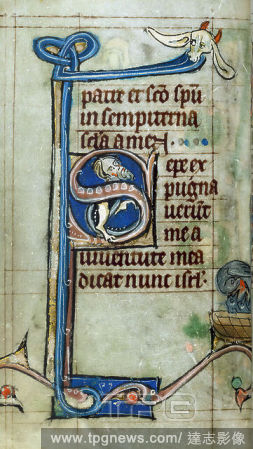 patre et sco spu
in sempiterna
scla amen
Sepe ex
pugna
verut
me a
iuventute mea
dicat nunc isrl.
TPG
www.tpgnews.com/ 達志影像